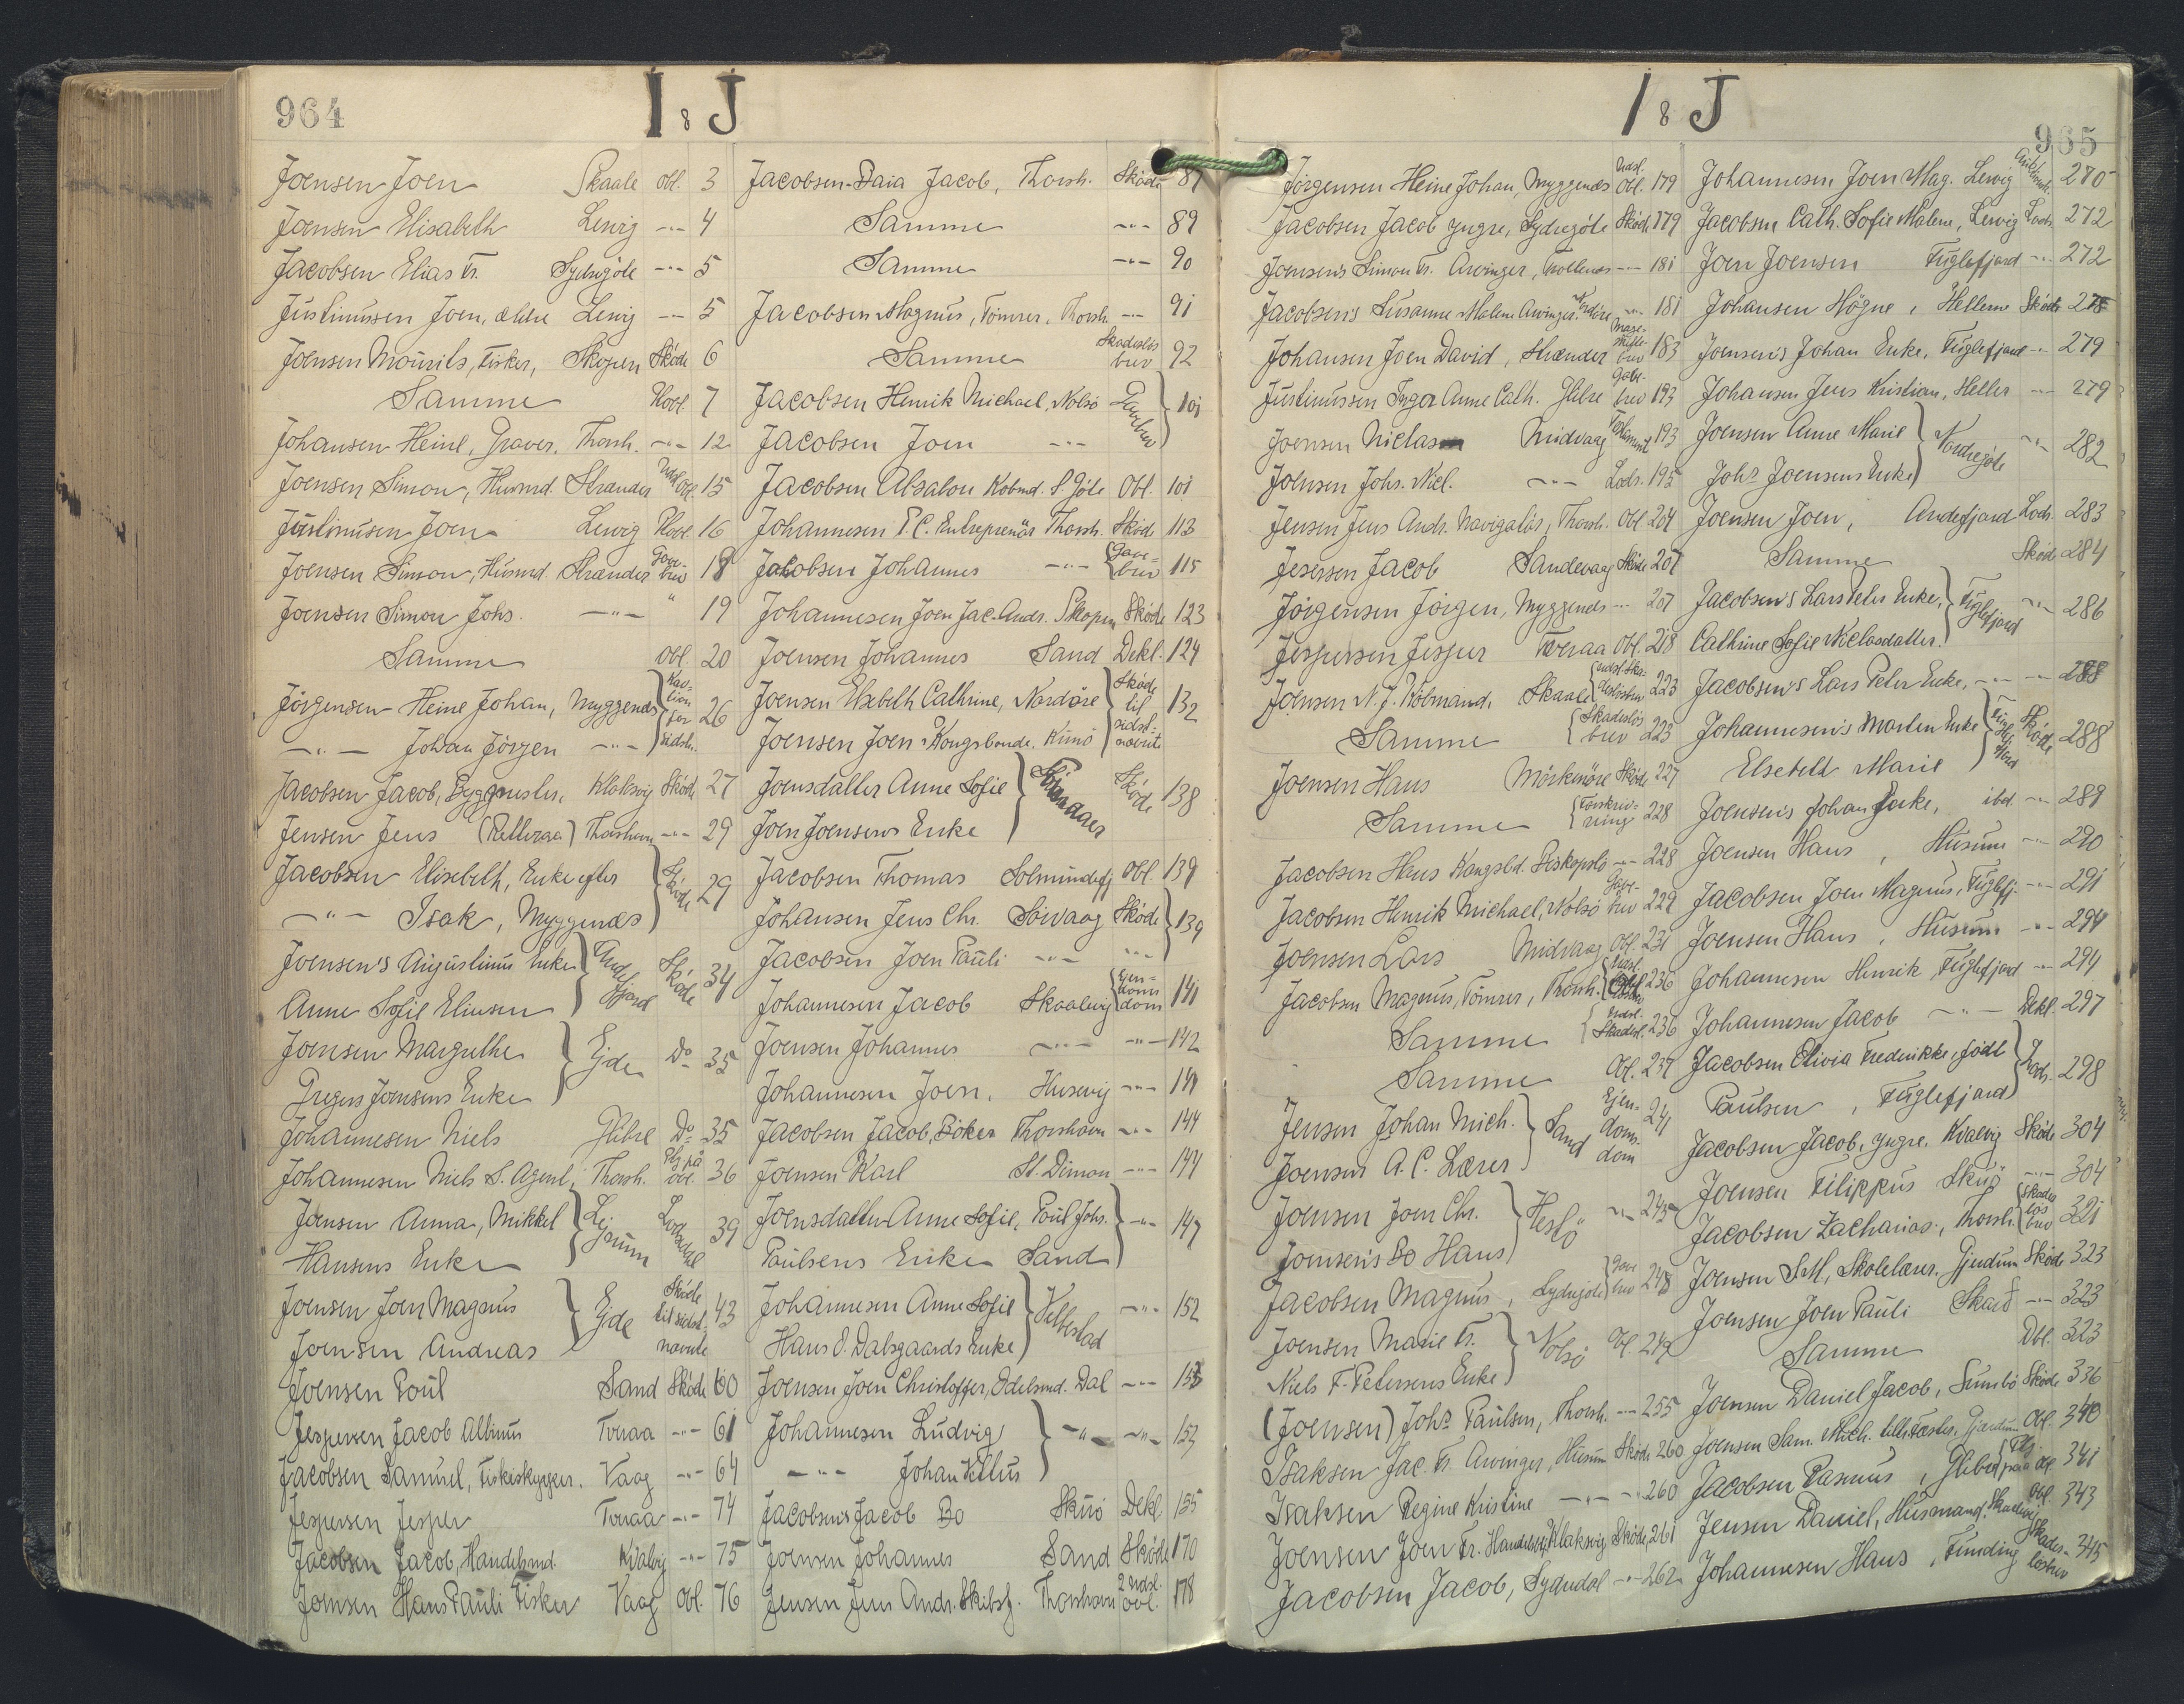 964
I & J
Joensen Joen Skaale Obl. 3
Joensen Elisabeth Lervig -"- 4
Jacobsen Elias Fr. Sydrejöte -"- 5
Justinussen Joen, ældre Lervig -"- 5
Joensen Mourits, Fisker, Skopen Sköde 6
Samme Hobl. 7
Johansen Heine, Graver, Thorsh. -"- 12
Joensen Simon, Husmd. Strænder Udsl. Obl. 15
Justinusen Joen Lervig Hobl. 16
Joensen Simon, Husmd. Strænder Gave-brev 18
Joensen Simon Johs. -"- " 19
Samme Obl. 20
Jörgensen Heine Johan, Myggenæs } Kau-tion for sidst. 26
-"- Johan Jörgen -"-
Jacobsen Jacob, Byggmester, Klaksvig Sköde 27
Jensen Jens (Retteraa) Thorshavn -"- 29
Jacobsen Elisebeth, Enke efter } Sköde 29
-"- Isak, Myggenæs
Joensen's Augustinus Enke } Andefjord Sköde 34
Anne Sofie Eliasen
Joensen Margrethe } Ejde Do 35
Gregers Joensens Enke
Johannesen Niels Glibre Do 35
Johannesen Niels S. Agent, Thorsh. Plg på obl. 36
Joensen Anna, Mikkel } Lejrum 39
Hansens Enke
Joensen Joen Magnus } Ejde Sköde til sidst-nævnte 43
Joensen Andreas
Joensen Poul Sand Sköde 60
Jespersen Jacob Albinus Tvraa -"- 61
Jacobsen Samuel, Fiskiskipper. Vaag -"- 64
Jespersen Jesper Tvraa -"- 74
Jacobsen Jacob, Handelsmd. Kvalvig -"- 75
Joensen Hans Pauli Fisker Vaag Obl. 76
Jacobsen-Daia Jacob, Thorsh. Sköde 87
Samme -"- 89
Samme -"- 90
Jacobsen Magnus, Tömrer, Thorsh. -"- 91
Samme Skadeslös brev 92
Jacobsen Henrik Michael, Nolsö } Gavebrev 101
Jacobsen Joen -"-
Jacobsen Absalon Köbmd. S. Göte Obl. 101
Johannesen P.C. Entreprenör Thorsh. Sköde 113
Jacobsen Johannes -"- Gave-brev 115
Johannesen Joen Jac. Andr. Skopen Sköde 123
Joensen Johannes Sand Dekl. 124
Joensen Elsebeth Cathrine, Nordöre } Sköde til sidst-nævnte 132
Joensen Joen Kongsbonde, Kunö
Joensdatter Anne Sofie } Strænder Sköde 138
Joen Joensens Enke
Jacobsen Thomas Solmundefj. Obl. 139
Johansen Jens Chr. Sörvaag Sköde } 139
Jacobsen Joen Pauli -"- -"-
Johannesen Jacob Skaalevig Ejen-doms dom 141
Joensen Johannes -"- -"- 142
Johannesen Joen, Husevig -"- 141
Jacobsen Jacob, Böker Thorshavn -"- 144
Joensen Karl St. Dimon -"- 144
Joensdatter Anne Sofie, Poul Johs. } -"- 147
Paulsens Enke Sand
Johannesen Anne Sofie } Velbestad -"- 152
Hans O. Dalsgaards Enke
Joensen Joen Christoffer, Odelsmd. Dal -"- 153
Johannesen Ludvig } -"- -"- 153
-"- Johan Vellus
Jacobsen's Jacob Bo Skuö Dekl. 155
Joensen Johannes Sand Sköde 170
Jensen Jens Andr. Skibsf. Thorshavn 2 Udsl. Obl. 178
I & J
965
Jörgensen Heine Johan, Myggenæs Udsl. Obl. 179
Jacobsen Jacob yngre, Sydregöte Sköde 179
Joensen's Simon Fr. Arvinger, Trollenæs -"- 181
Jacobsen's Susanne Malene Arvinger Nordöre -"- 181
Johansen Joen David, Strænder Mage-skifte-brev 183
Justinussen Inger Anne Cath. Glibre Gave-brev 193
Joensen Niclas Midvaag Testament 193
Joensen Johs. Nicl. -"- Lods. 195
Jensen Jens Andr. Navigatör, Thorsh. Obl. 204
Jesersen Jacob Sandevaag Sköde 207
Jörgensen Jörgen, Myggenæs -"- 207
Jespersen Jesper Tværaa Obl. 218
Joensen N. J. Köbmand, Skaale Udsl. Ska-deslösbrev 223
Samme Skadeslös brev 223
Joensen Hans Mörkenöre Sköde 227
Samme Forskriv-ning 228
Jacobsen Hans Kongsbd. Biskopstö -"- 228
Jacobsen Henrik Michael, Nolsö Gave-brev 229
Joensen Lars Midvaag Obl. 231
Jacobsen Magnus, Tömrer, Thorsh. 236
Samme Udsl. Skadesl. 236
Samme Obl. 237
Jensen Johan Mich. } Sand Ejen-doms-dom 241
Joensen A. C. Lærer
Joensen Joen Chr. } Hestö -"- 245
Joensen's Bo Hans
Jacobsen Magnus, Sydrejöte Gave brev 248
Joensen Marie Fr. } Nolsö Obl. 249
Niels F. Petersens Enke
(Joensen) Johs Paulsen, Thorsh. -"- 255
Isaksen Jac. Fr. Arvinger, Husum Sköde 260
Isaksen Regine Kristine -"- -"- 260
Joensen Joen Fr. Handelsbej. Klaksvig Sköde 261
Jacobsen Jacob, Sydradal -"- 262
Johannesen Joen Mag. Lervig 270
Jacobsen Cath. Sofie Malene, Lervig Lods. 272
Joen Joensen Fuglefjord -"- 272
Johansen Högne, Hellerne Sköde 278
Joensen's Johan Enke, Fuglefjord -"- 279
Johansen Jens Kristian, Heller -"- 279
Joensen Anne Marie } Nordrejöte -"- 282
Johs Joensens Enke
Joensen Joen, Andefjord Lods. 283
Samme Sköde 284
Jacobsen's Lars Peter Enke, } Fuglefjord -"- 286
Cathrine Sofie Niclasdatter.
Jacobsen's Lars Peter Enke, -"- -"- 288
Johannesen's Morten Enke } Fuglefjord Sköde 288
Elsebeth Marie
Joensen's Johan Enke, ibd. -"- 289
Joensen Hans, Husum -"- 290
Jacobsen Joen Magnus, Fuglefj. -"- 291
Joensen Hans, Husum -"- 294
Johannesen Henrik, Fuglefjord -"- 294
Johannesen Jacob -"- Dekl. 297
Jacobsen Olivia Frederikke, födt } Lods. 298
Paulsen, Fuglefjord
Jacobsen Jacob, yngre, Kvalvig Sköde 304
Joensen Filippus Skuö -"- 304
Jacobsen Zacharias, Thorsh. Skades lös brev 321
Joensen S.M., Skolelærer. Gjendum Sköde 323
Joensen Joen Pauli Skard -"- 323
Samme Obl. 323
Joensen Daniel Jacob, Sumbö Sköde 336
Joensen Sam. Mich. Gjendum Obl. 340
Jacobsen Rasmus, Glibre Plg paa obl. 341
Jensen Daniel, Husmand, Skaalevig Obl. 343
Johannesen Hans, Funding Skades-lösbrev 345